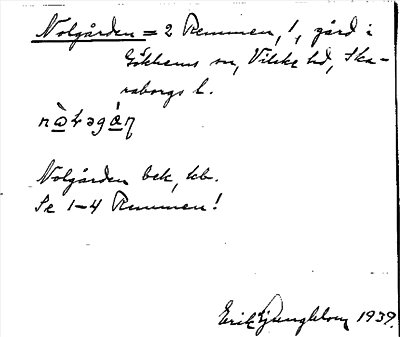 Nolgården = 2 Remmen, 1, gård i
Gökhems sn, Vilske hd, Ska-
raborgs l.
Nolgården bek, kb.
Se 1-4 Remmen!
Erik Ljungblom 1939.